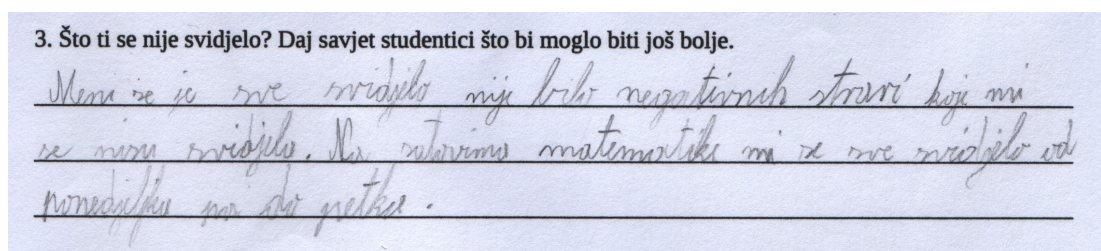 3. Što ti se nije svidjelo? Daj savjet studentici što bi moglo biti još bolje.
Meni se je sve svidjelo nije bilo negativnih stvari koje mi
se nisu svidjelo. Na satovima matematike mi se sve svidjelo od
ponedjeljka pa do petka.